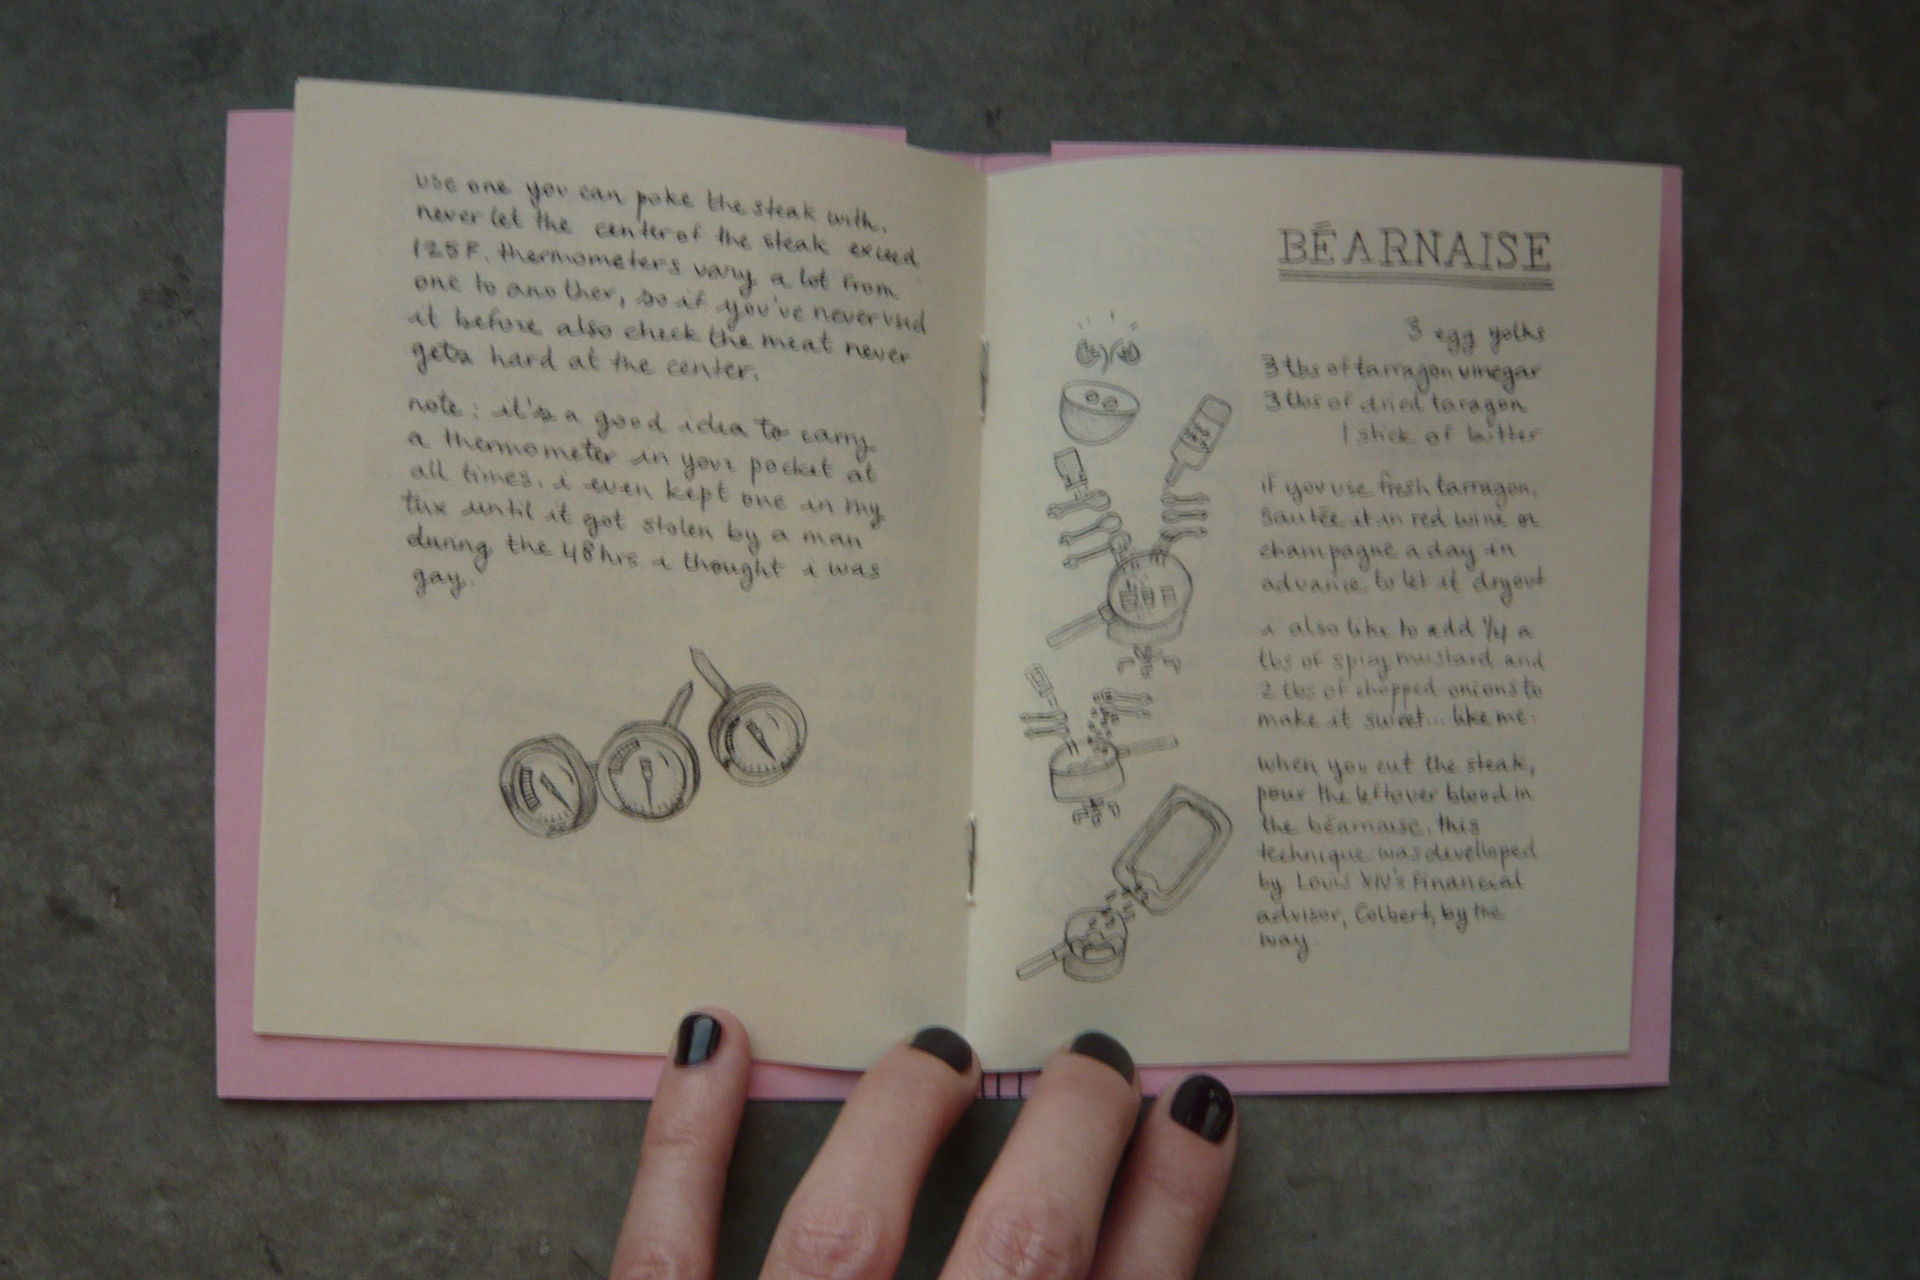 use one you can poke the steak with.
never let the center of the steak exceed
125F. thermometers vary a lot from
one to another, so if you've never used
it before also check the meat never
gets hard at the center.
note: it's a good idea to carry
a thermometer in your pocket at
all times. i even kept one in my
tux until it got stolen by a man
during the 48hrs i thought i was
gay.
BÉARNAISE
3 egg yolks
3 tbs of tarragon vinegar
3 tbs of dried taragon
1 stick of butter
if you use fresh tarragon,
sautée it in red wine or
champagne a day in
advance to let it dryout
i also like to add 1/4 a
tbs of spicy mustard and
2 tbs of chopped onions to
make it sweet... like me.
when you cut the steak,
pour the leftover blood in
the béarnaise. this
technique was develloped
by Louis XIV's Financial
advisor, Colbert, by the
way